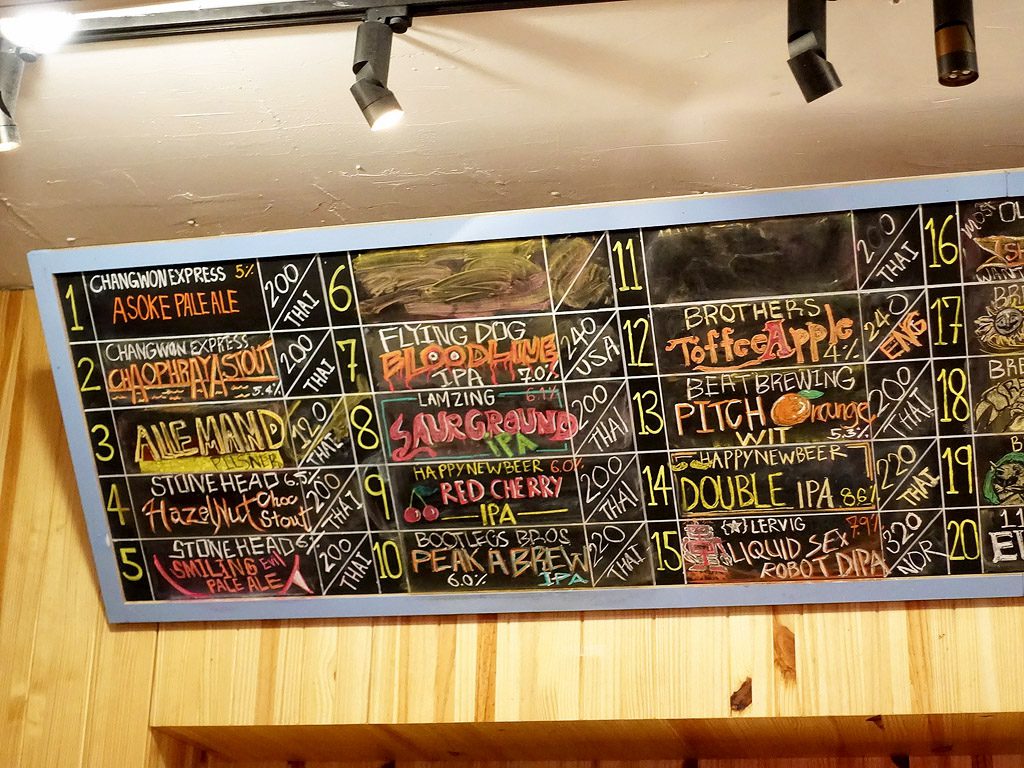 1 CHANGWON EXPRESS 5%
ASOKE PALE ALE
200 THAI
2 CHANGWON EXPRESS
CHAOPHRAYA STOUT
5.4%
200 THAI
3 ALLEMAND
PILSNER
THAI
4 STONE HEAD 6.5%
HazelNut Choc
Stout
200 THAI
5 STONE HEAD 6%
SMILING
PALE ALE
200 THAI
6
7 FLYING DOG
BLOODLINE
IPA 7.0%
240 USA
8 LAMZING 6.1%
SAURGROUND
IPA
200 THAI
9 HAPPYNEWBEER 6.0%
RED CHERRY
IPA
200 THAI
10 BOOTLEGS BROS
PEAK A BREW
6.0% IPA
THAI
11
200 THAI
12 BROTHERS
ToffeeApple
4%
240 ENG
13 BEAT BREWING
PITCH Orange
WIT 5.3%
200 THAI
14 HAPPYNEWBEER
DOUBLE IPA 8.6%
220 THAI
15 LERVIG 7.9%
LIQUID SEX
ROBOT DIPA
320 NOR
16
17
18
19
20